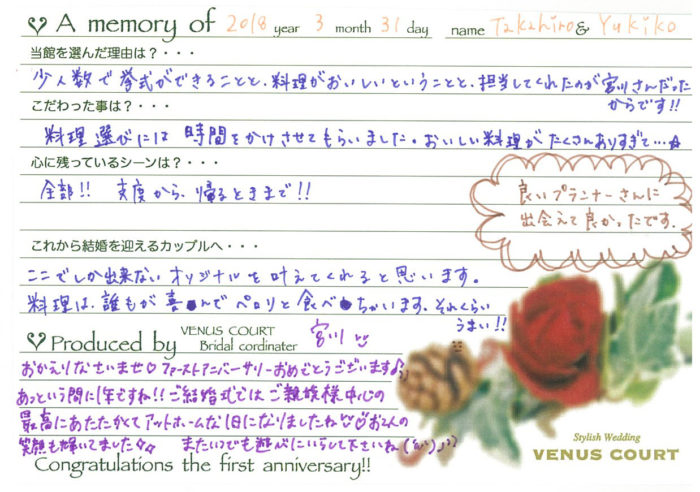 A memory of 2018 year 3 month 31 day name Takahiro & Yukiko
当館を選んだ理由は？・・・
少人数で挙式ができることと、料理がおいしいということと、担当してくれたのが宮川さんだった
からです!!
こだわった事は？・・・
料理選びには 時間をかけさせてもらいました。おいしい料理がたくさんありすぎて…☆
心に残っているシーンは？・・・
全部!! 支度から、帰るときまで!!
良いプランナーさんに
出会えて良かったです。
これから結婚を迎えるカップルへ・・・
ここでしか出来ないオリジナルを叶えてくれると思います。
料理は、誰もが喜んでペロリと食べちゃいます。それくらい
うまい!!
Produced by VENUS COURT
Bridal cordinater 宮川
おかえりなさいませ♡ファーストアニバーサリーおめでとうございます♪
あっという間に1年ですね!!ご結婚式ではご親族様中心の
最高にあたたかくてアットホームな1日になりましたね♡お二人の
笑顔も輝いてました☆ またいつでも遊びにいらして下さいね(^^)♪
Congratulations the first anniversary!!
Stylish Wedding
VENUS COURT